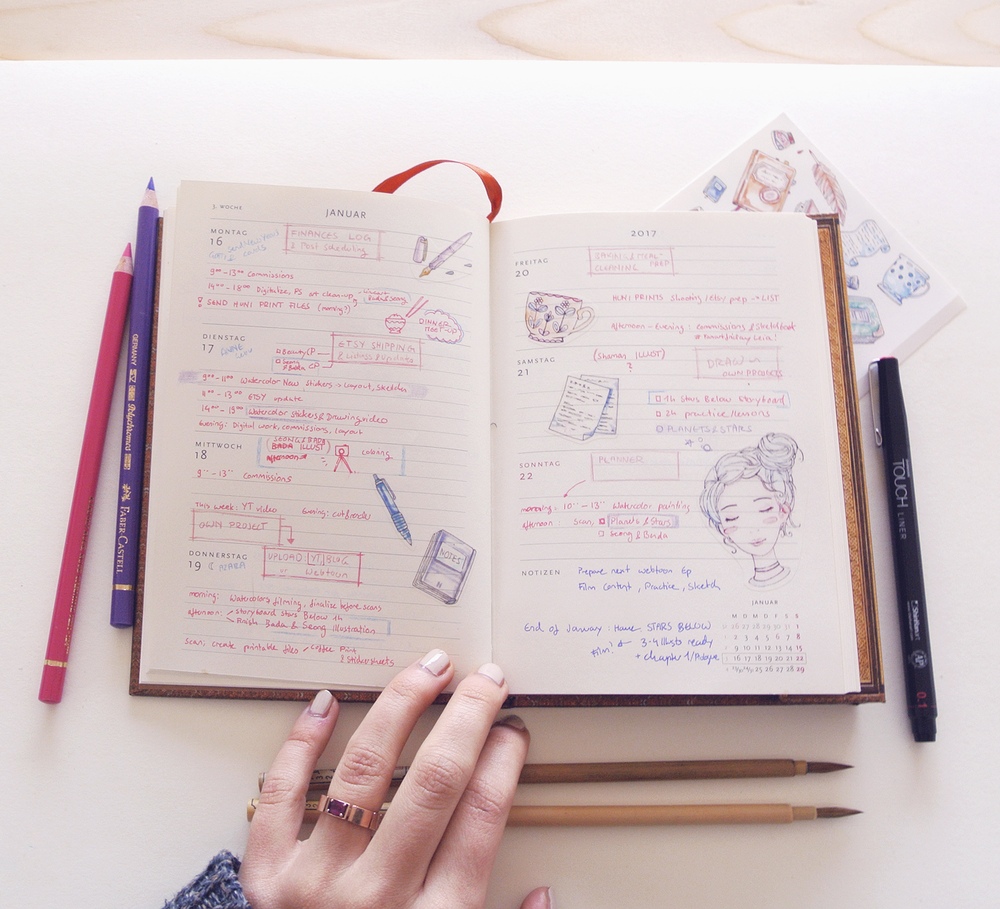 3. WOCHE
JANUAR
MONTAG
16
FINANCES LOG
& Post Scheduling
9⁰⁰ - 13⁰⁰ Commissions
14⁰⁰ - 18⁰⁰ Digitalize, PS art clean-up
Bada & Seong
SEND HUNI PRINT FILES (morning?)
DINNER
MEET-UP
DIENSTAG
17
ETSY SHIPPING
& listings & updates
Beauty CP
Seong
& Bada CP
9⁰⁰ - 11⁰⁰ Watercolor New stickers → Layout, Sketches
- 13⁰⁰ ETSY update
14⁰⁰ - 19⁰⁰ Watercolor Stickers & Drawing video
Evening: Digital work, commissions, layout
MITTWOCH
18
(SEONG & BADA
BADA ILLUST)
Afternoon
coloring
9⁰⁰ - 13⁰⁰ commissions
This week: YT video
evening:
OWN PROJECT
DONNERSTAG
19
UPLOAD: YT, BLOG
or Webtoon
morning: Watercolors filming, finalise before scans
afternoon: storyboard Stars Below 1h
Finish Bada & Seong illustration
Scan, create printable files - Coffee Print
& Stickersheets
2017
FREITAG
20
SAVINGS & MEAL
CLEANING PREP
HUNI PRINTS Shooting sets/prep → LIST
afternoon - evening: Commissions & Sketchbook
SAMSTAG
21
(Shaman ILLUST)
?
DRAW
OWN PROJECT
1h Stars Below Storyboard
2h practice/lessons
PLANETS & STARS
SONNTAG
22
PLANNER
morning: 10⁰⁰ - 13⁰⁰ Watercolor painting
afternoon: Scan, Planets & Stars
Seong & Bada
NOTES
NOTIZEN
Prepare next webtoon Ep
Film Content, Practice, Sketch
End of January: Have STARS BELOW
Film! & 3-4 Illusts ready
+ chapter 1/Prologue
JANUAR
M D M D F S S
26 27 28 29 30 31 1
2 3 4 5 6 7 8
9 10 11 12 13 14 15
16 17 18 19 20 21 22
23/30 24/31 25 26 27 28 29
GERMANY
Polychromos
FABER-CASTELL
TOUCH
LINER
ShinHanart
AP
0.1